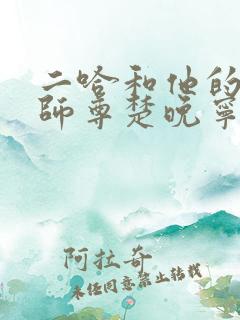 二哈和他的
師尊楚晚寧
阿拉奇
未经同意禁止转载